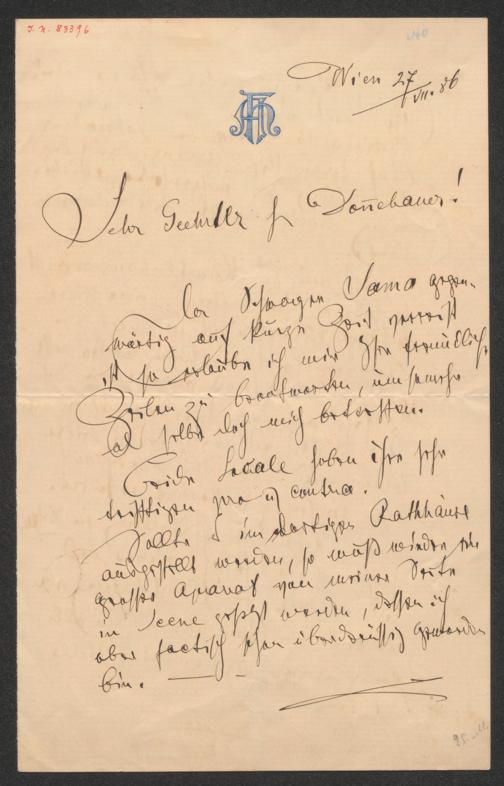 J. N. 83396
Wien 27/VII. 86
Sehr Geehrter H Donebauer!
Da Schwager Samo gegen-
wärtig auf kurze Zeit verreist
ist so erlaube ich mir Ihre freundlich.
Zeilen zu beantworten, umsomehr
als selbe doch mich betreffen.
Beide Locale haben ihre sehr
triftigen pro u contra.
Sollte im dortigen Rathhause
ausgestellt werden, so muß wieder ein
grosser Aparat von meiner Seite
in Scene gesetzt werden, dessen ich
aber factisch schon überdrüssig geworden
bin.